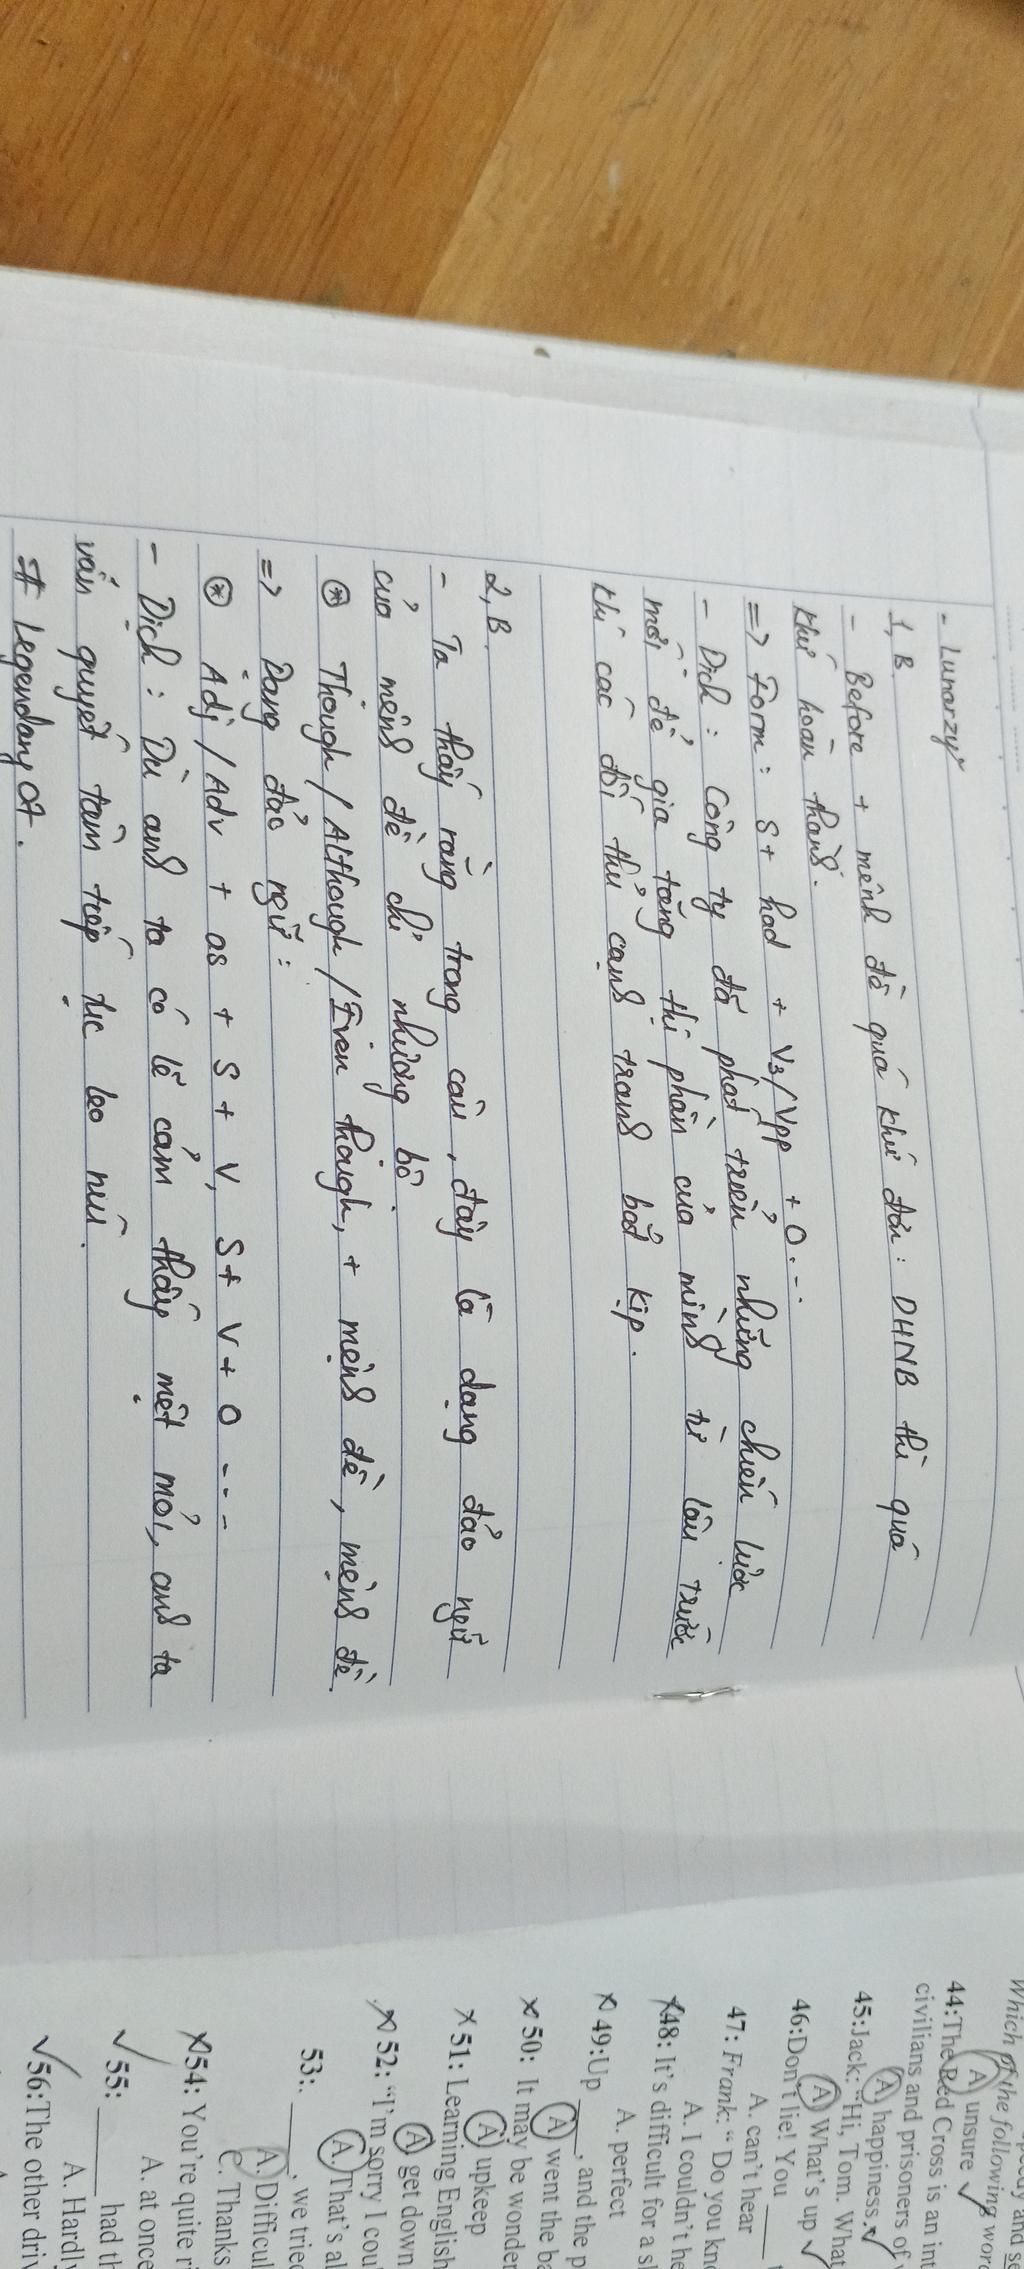 - Lunarzy
1, B.
- Before + mệnh đề quá khứ đơn : DHNB thì quá
khứ hoàn thành.
=> Form : S + had + V3/Vpp + O...
- Dịch : Công ty đã phát triển những chiến lược
mới để gia tăng thị phần của mình từ lâu trước
khi các đối thủ cạnh tranh bắt kịp.
2, B.
- Ta thấy rằng trong câu, đây là dạng đảo ngữ
của mệnh đề chỉ nhượng bộ.
⊛ Though / Although / Even though, + mệnh đề, mệnh đề.
=> Dạng đảo ngữ :
⊛ Adj / Adv + as + S + V, S + V + O ...
- Dịch : Dù anh ta có lẽ cảm thấy mệt mỏi, anh ta
vẫn quyết tâm tiếp tục leo núi.
# Legendary 07.
Which of the following word
A unsure
44:The Red Cross is an int
civilians and prisoners of
A happiness.
45:Jack: "Hi, Tom. What
A What's up
46:Don't lie! You ____ t
A. can't hear
47: Frank: "Do you kn
A. I couldn't he
48: It's difficult for a sl
A. perfect
49:Up ____, and the p
A went the ba
50: It may be wonder
A upkeep
51: Learning English
A get down
52: "I'm sorry I coul
A. That's al
53:. ____, we tried
A. Difficul
C. Thanks
54: You're quite ri
A. at once
55: ____ had th
A. Hardly
56:The other driv